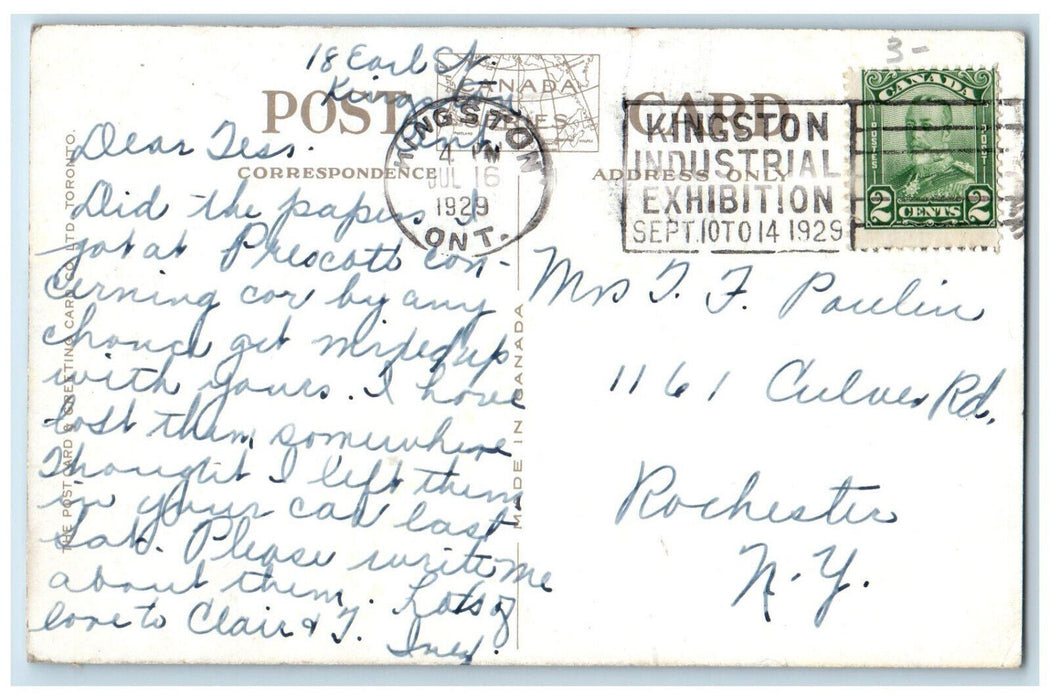 3-
18 Earl St.
Kingston
Ont.
CANADA
POST CARD
CORRESPONDENCE
ADDRESS ONLY
KINGSTON
4 PM
JUL 16
1929
ONT.
KINGSTON
INDUSTRIAL
EXHIBITION
SEPT. 10 TO 14 1929
CANADA
POSTES
POST
2 CENTS 2
Dear Tess.
Did the papers I
got at Prescott con-
cerning car by any
chance get mixed up
with yours. I have
lost them somewhere
Thought I left them
in your car last
Sat. Please write me
about them. Lots of
love to Clair & T.
Inez.
Mrs T. F. Paulin
1161 Culver Rd.
Rochester
N.Y.
THE POST CARD & GREETING CARD CO. LTD. TORONTO.
MADE IN CANADA